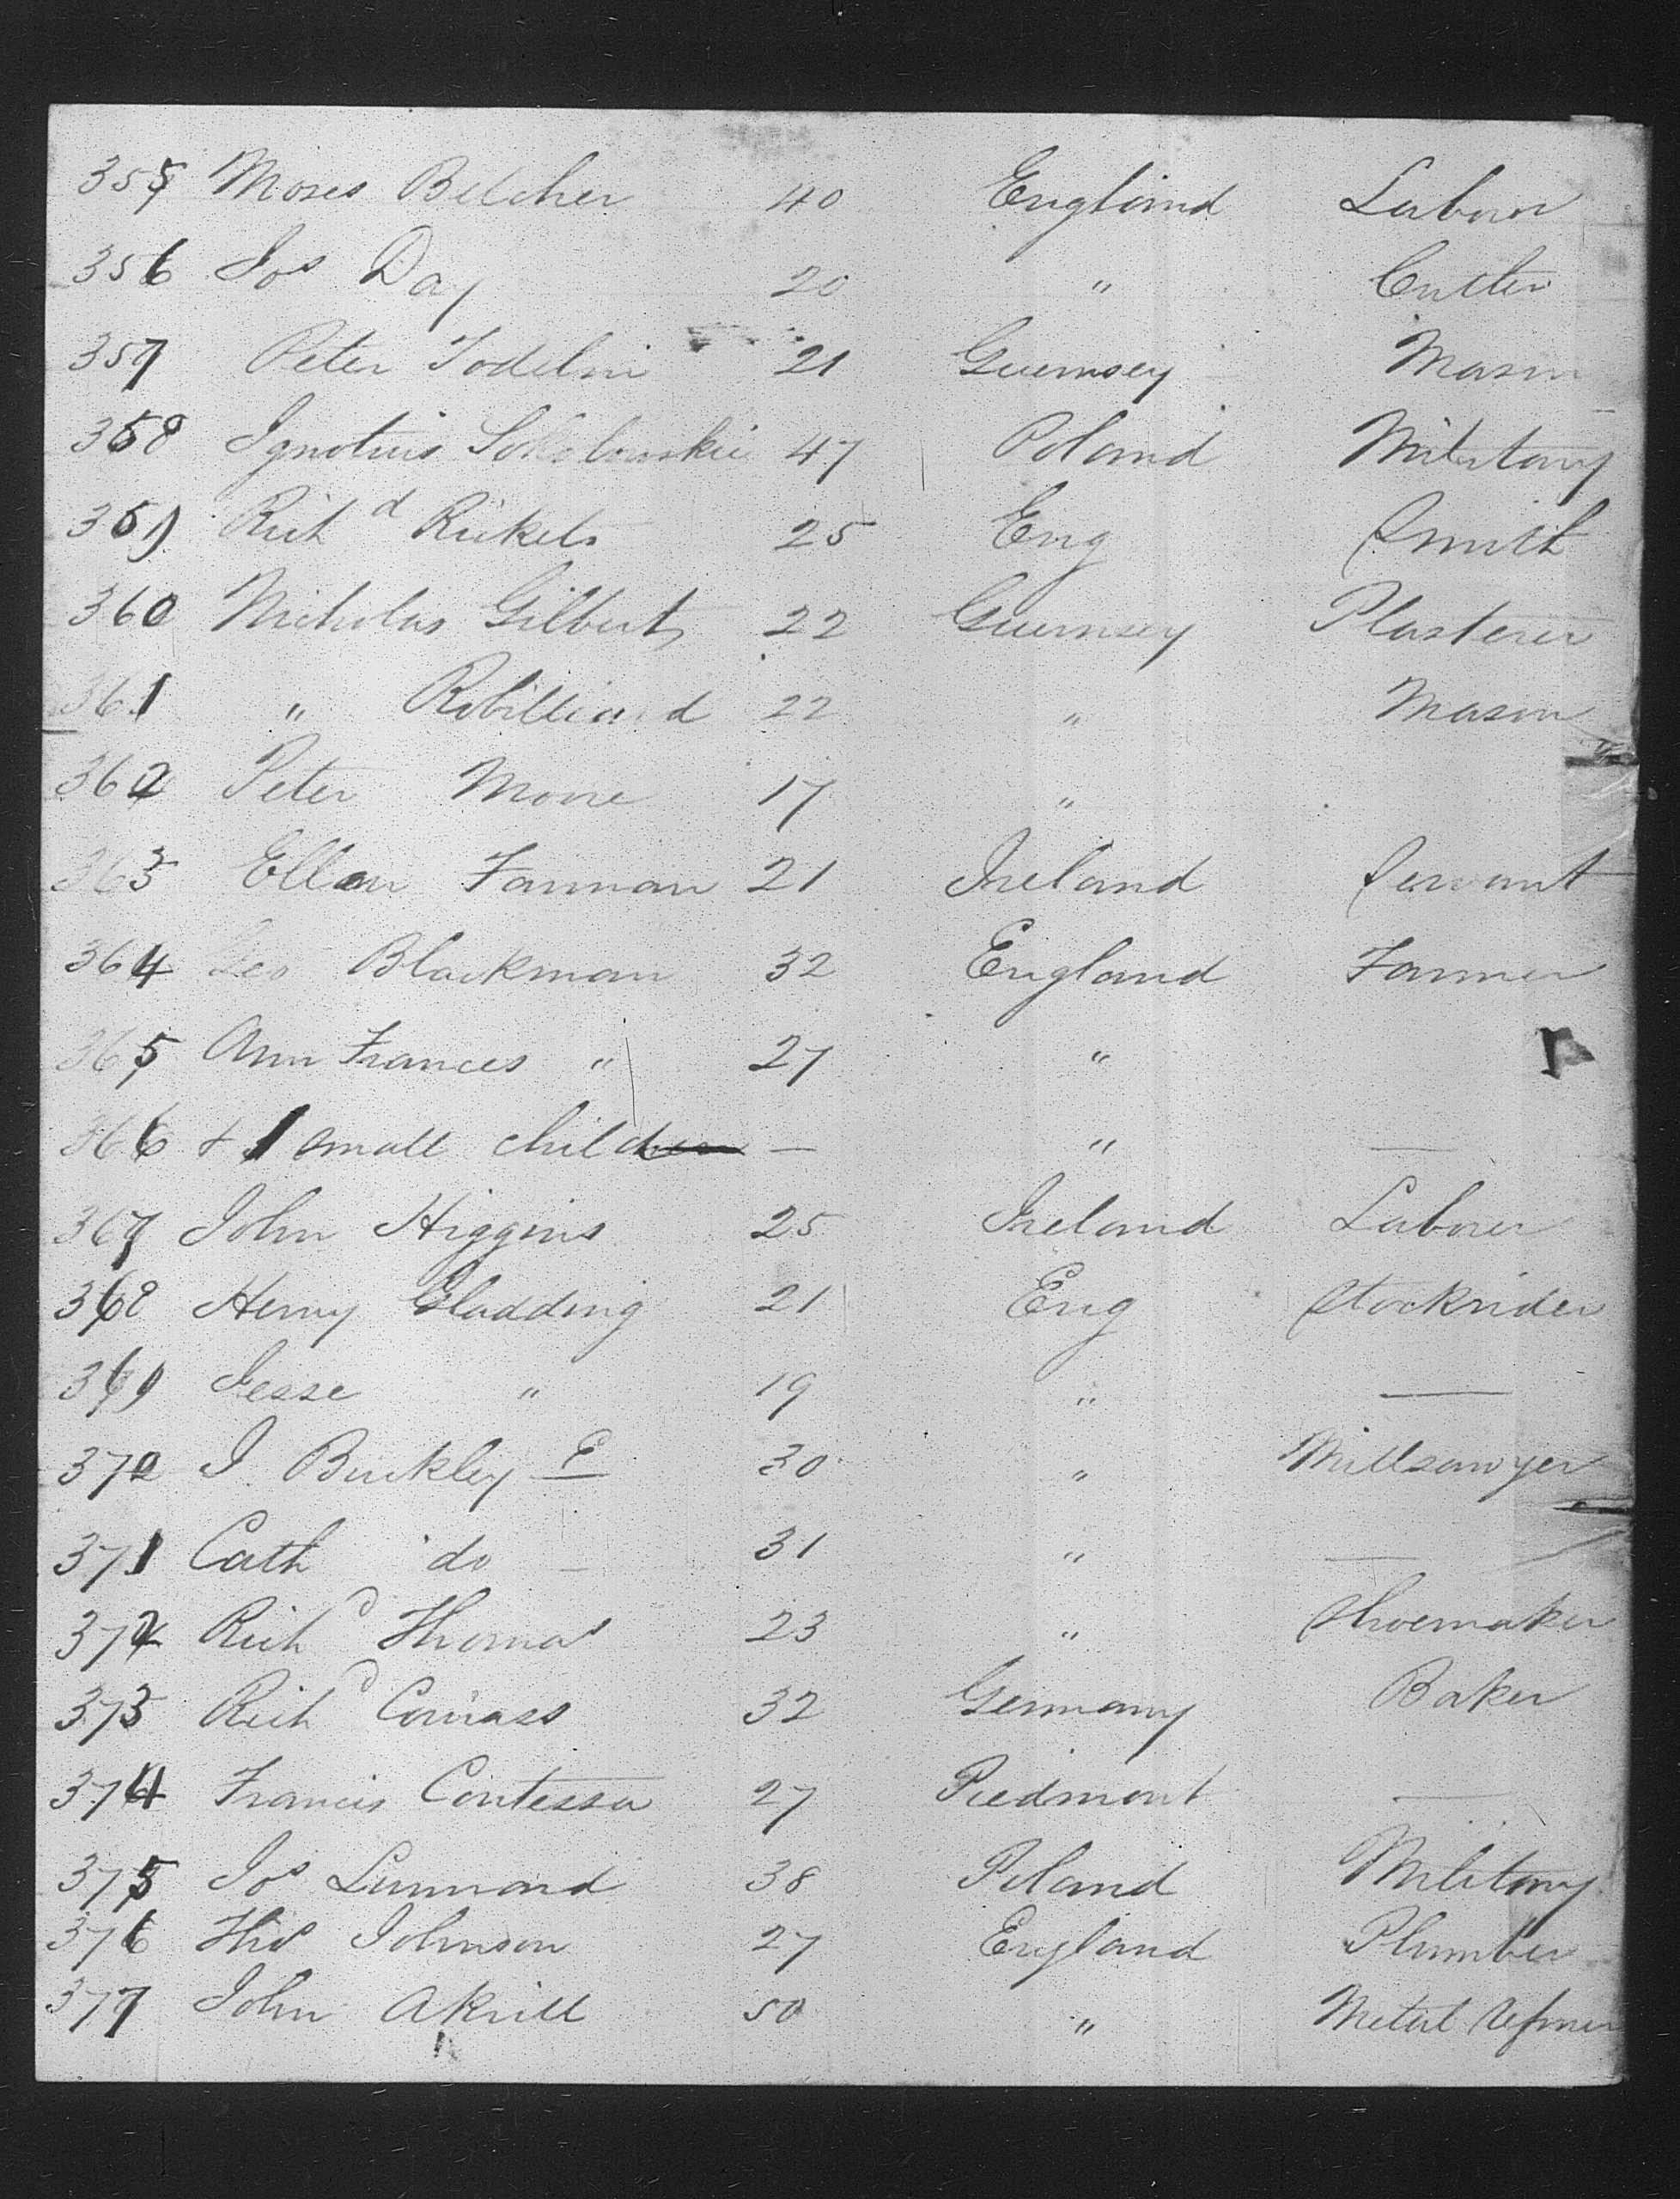 355 Moses Belcher 40 England Labour
356 Jos Day 20 " Cutter
357 Peter Todelin 21 Guernsey Mason
358 Ignotius Sokolowskie 47 Poland Military
359 Rich d Rickets 25 Eng Smith
360 Nicholas Gilbert 22 Guernsey Plasterer
361 " Robilliard 22 " Mason
362 Peter Moore 17 "
363 Ellen Fannan 21 Ireland Servant
364 Geo Blackman 32 England Farmer
365 Ann Frances " 27 "
366 + 1 small child — " —
367 John Higgins 25 Ireland Laborer
368 Henry Gladding 21 Eng Stockrider
369 Jesse " 19 " —
370 J Buckley E 30 " Millsawyer
371 Cath do 31 " —
372 Rich d Thomas 23 " Shoemaker
373 Rich d 32 Germany Baker
374 Francis Contessa 27 Piedmont —
375 Jos 38 Poland Military
376 Thos Johnson 27 England Plumber
377 John Akrill 50 " Metal Refiner